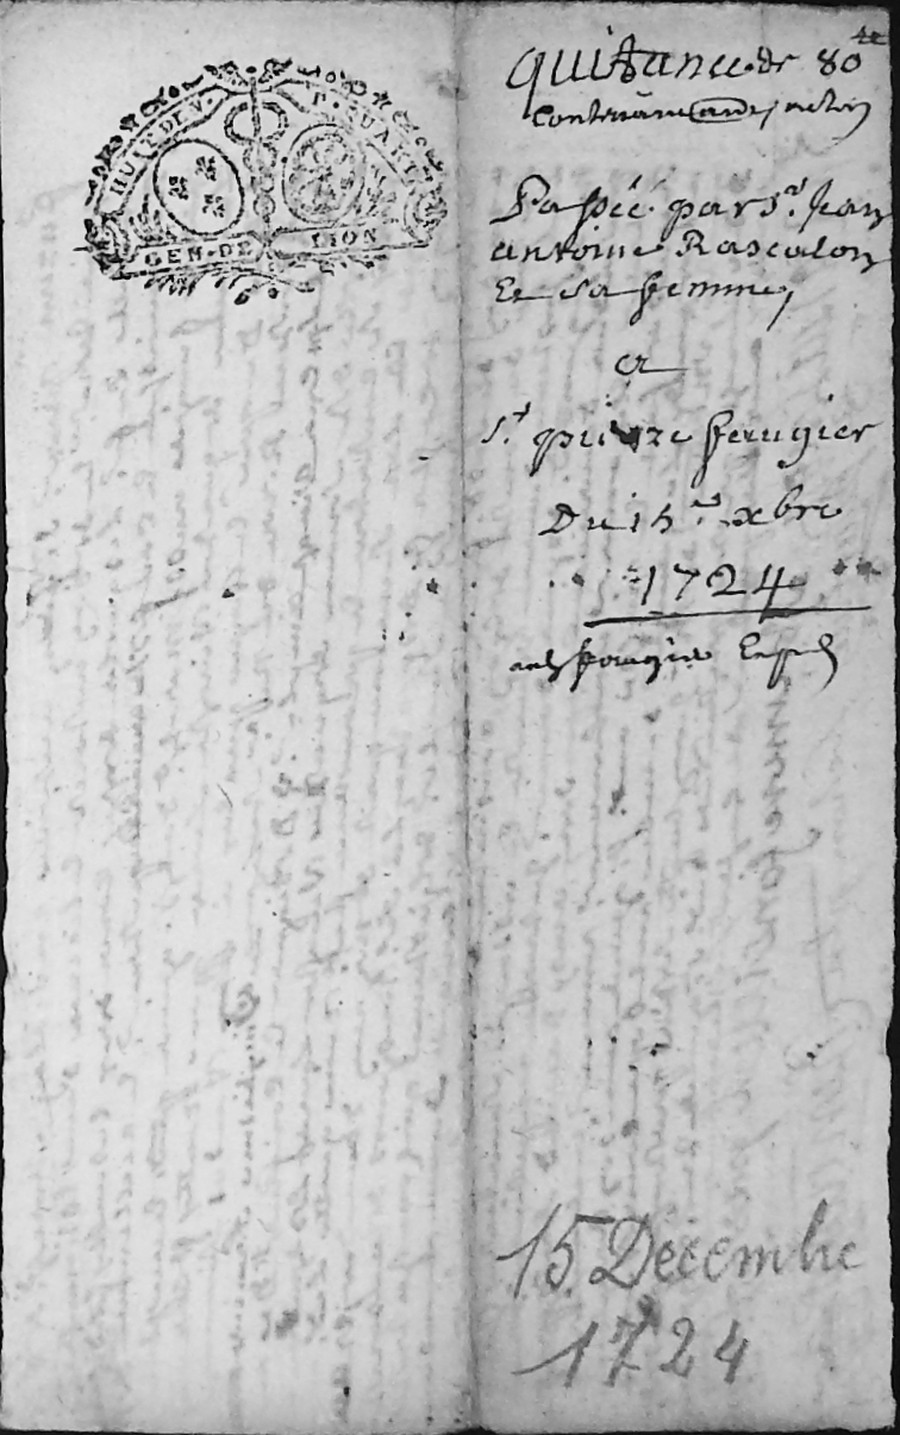 HUIT DE V. P. QUART
GEN. DE LION
quittance de 80
Contenant
Passée par Sr. Jean
antoine Rascalon
Et sa femme,
a
Sr. pierre faugier
Du 15e xbre
1724
faugier
15 Decembre
1724